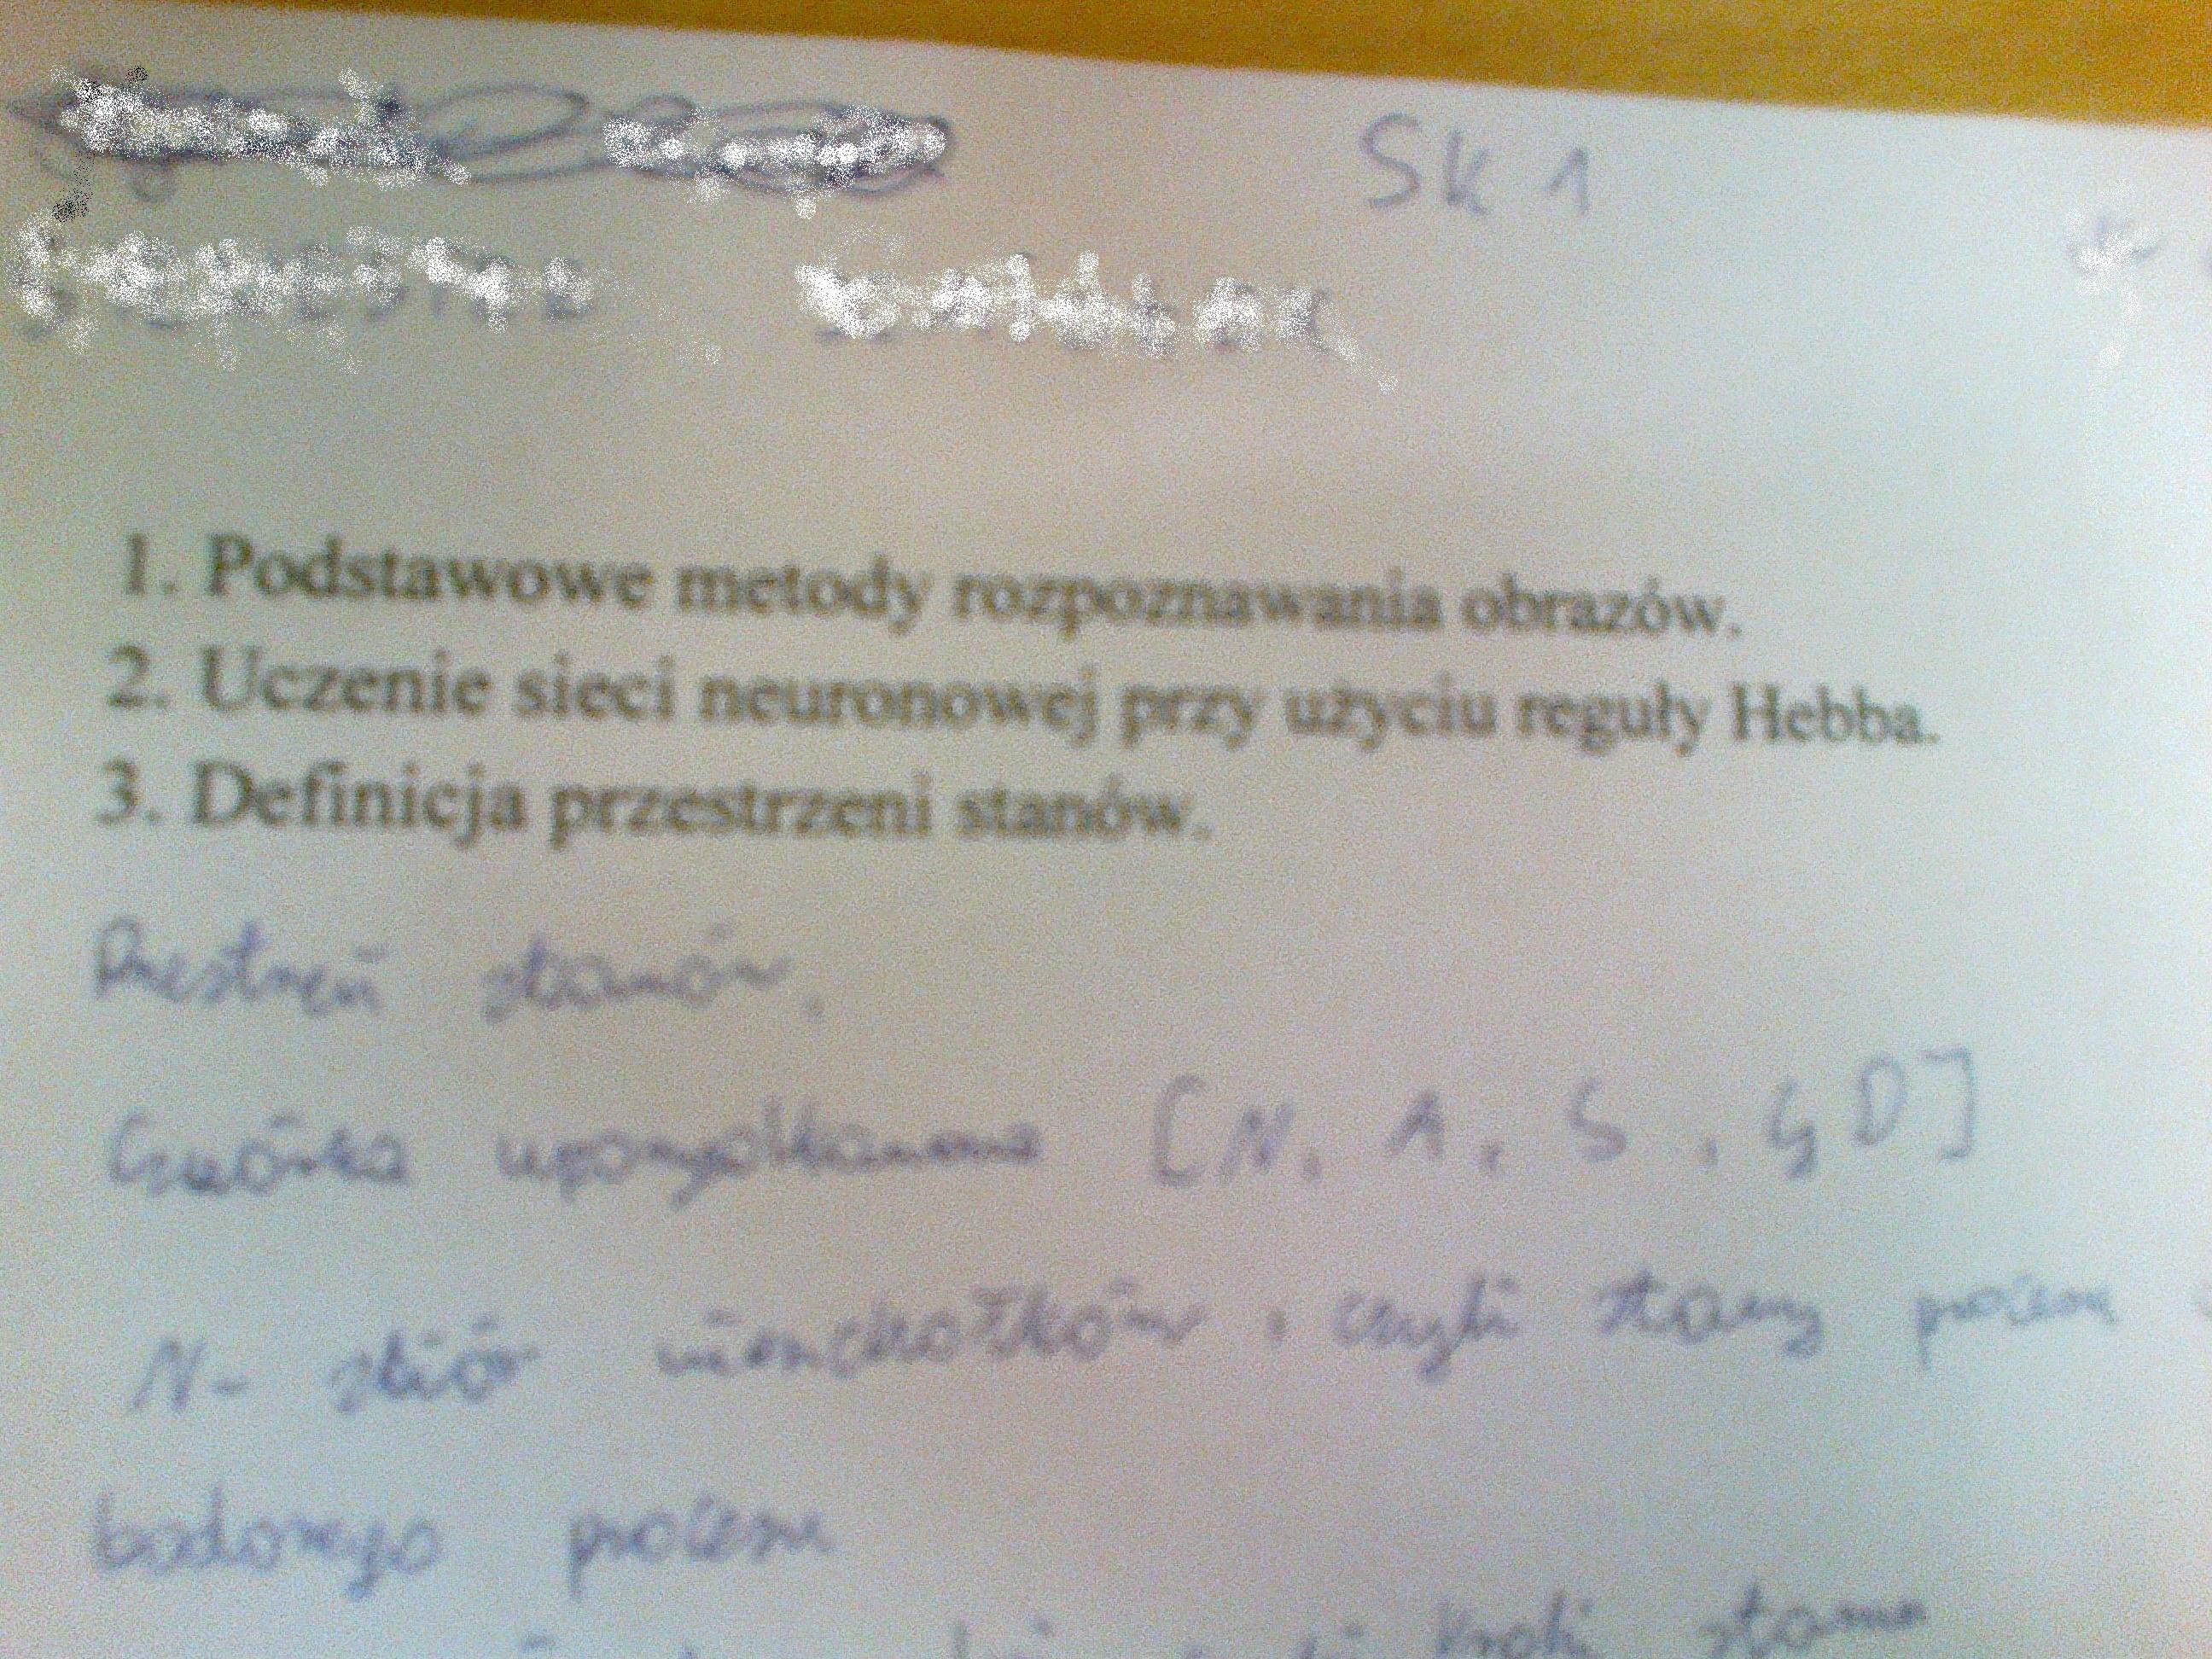 SK 1
1. Podstawowe metody rozpoznawania obrazów.
2. Uczenie sieci neuronowej przy użyciu reguły Hebba.
3. Definicja przestrzeni stanów.
Przestrzeń stanów.
Czwórka uporządkowana [N, A, S, GD]
N- zbiór wierzchołków, czyli stany
badanego procesu
stanu